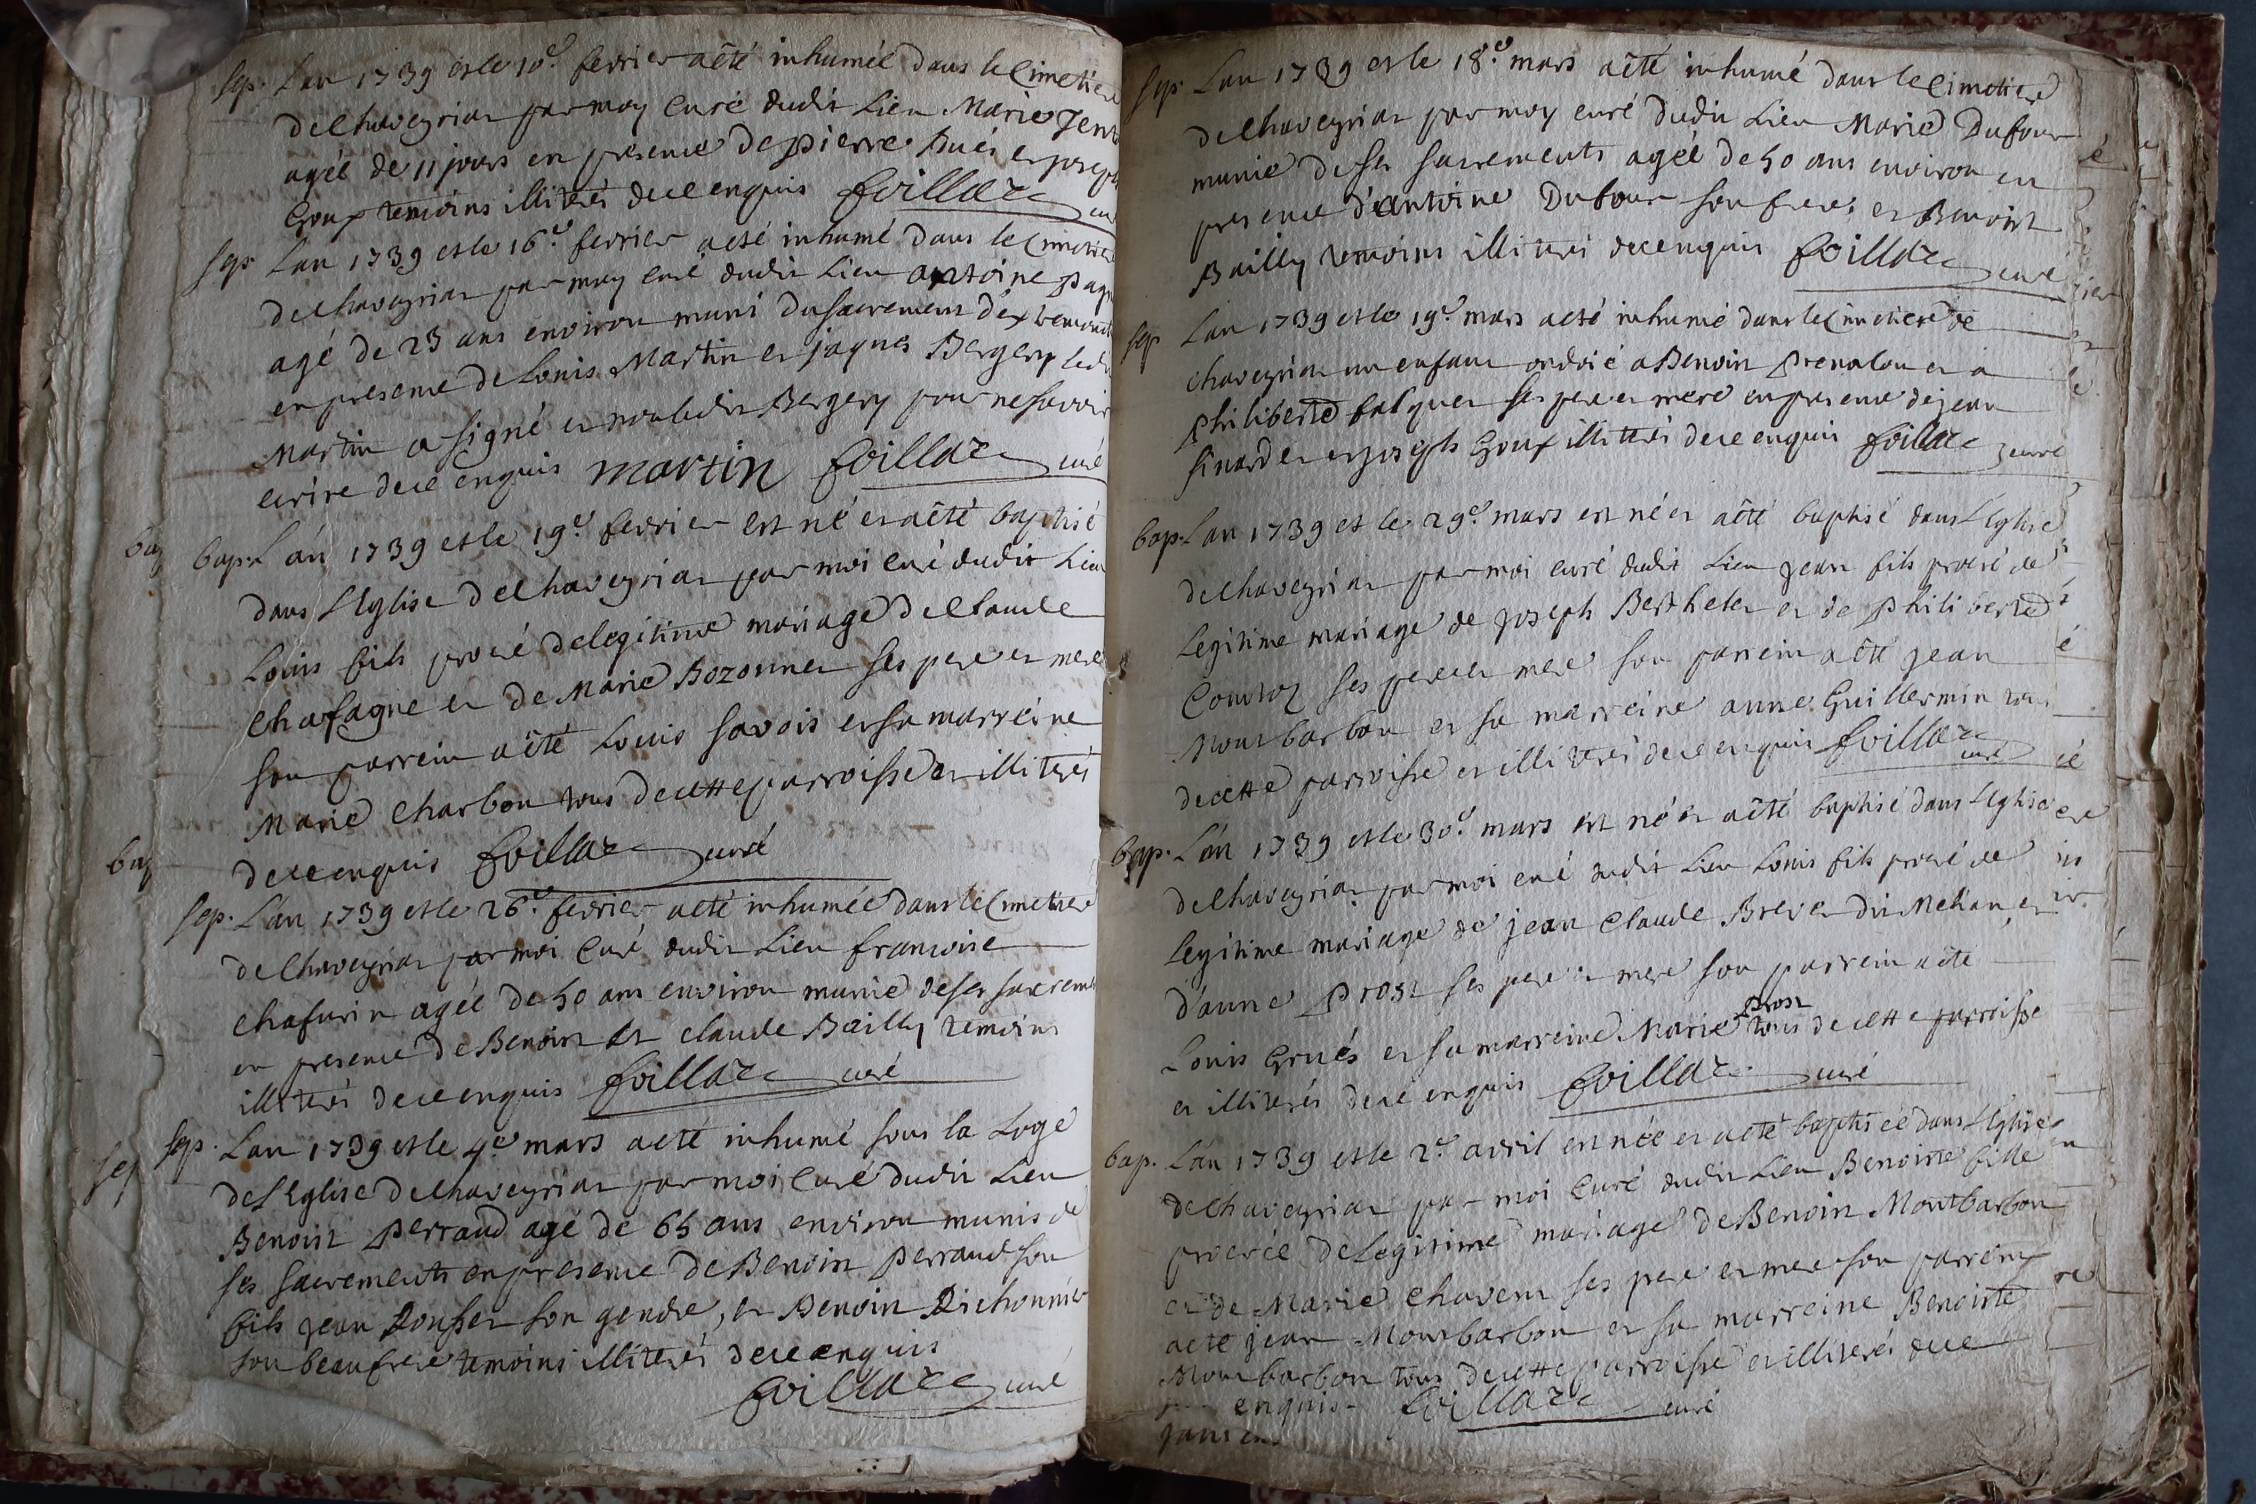 sep. Lan 1739 et le 10e. fevrier a êté inhumée dans le Cimetiere
de Chaveyriat par moy Curé dudit Lieu Marie
agée de 11 jours en presence de pierre et joseph
Goux temoins illiterés de ce enquis foillaz curé
sep. Lan 1739 et le 16e. fevrier a eté inhumé dans le Cimetiere
de Chaveyriat par moy curé dudit Lieu antoine
agé de 23 ans environ muni du sacrement d'extremonction
en presence de Louis Martin et jaques Bergery ledit
Martin a signé et non ledit Bergery pour ne savoir
ecrire de ce enquis martin foillaz curé
bap. L'an 1739 et le 19e. fevrier est né et a êté baptisé
dans L'Eglise de Chaveyriat par moi Curé dudit Lieu
Louis fils procréé de legitime mariage de Claude
Chafagne et de Marie Bozonnet ses pere et mere
son parrein a êté Louis Savois et sa marreine
Marie Charbon tous de cette parroisse et illiterés
de ce enquis foillaz curé
sep. L'an 1739 et le 26e. fevrier a eté inhumée dans le Cimetiere
de Chaveyriat par moi Curé dudit Lieu francoise
Chafurin agée de 50 ans environ munie de ses sacrements
en presence de Benoist et Claude Bailly temoins
illiterés de ce enquis foillaz curé
sep. Lan 1739 et le 4e mars a eté inhumé sous la Loge
de L'Eglise de Chaveyriat par moi Curé dudit Lieu
Benoist perraud agé de 65 ans environ munis de
ses sacrements en presence de Benoit perraud son
fils jean Rousset son gendre, et Benoit Dichonnier
son beaufrere temoins illiterés de ce enquis
foillaz curé
sep. Lan 1739 et le 18e. mars a êté inhumé dans le Cimetiere
de Chaveyriat par moy curé dudit Lieu Marie Dufour
munie de ses sacrements agée de 50 ans environ en
presence d'antoine Dufour son frere, et Benoist
Bailly temoins illiterés de ce enquis foillaz curé
sep. Lan 1739 et le 19e. mars a eté inhumé dans le Cimetiere de
chaveyriat un enfant ondoié a Benoit prenalon et a
philiberte falquet ses pere et mere en presence de jean
sinardet et joseph Goux illiterés de ce enquis foillaz curé
bap. Lan 1739 et le 29e. mars est né et a êté baptisé dans L'Eglise
de Chaveyriat par moi curé dudit Lieu jean fils procréé de
Legitime mariage de joseph Berthelet et de philiberte
Courtoz ses pere et mere son parrein a êté jean
Montbarbon et sa marreine anne Guillermin tous
de cette parroisse et illiterés de ce enquis foillaz curé
bap. L'an 1739 et le 30e. mars est né et a êté baptisé dans L'Eglise
de Chaveyriat par moi curé dudit Lieu Louis fils procréé de
Legitime mariage de jean Claude Brevet dit Mehan, et
d'anne prost ses pere et mere son parrein a êté
Louis Grués et sa marreine Marie prost tous de cette parroisse
et illiterés de ce enquis foillaz curé
bap. L'an 1739 et le 2e. avril est née et a eté baptisée dans L'Eglise
de Chaveyriat par moi Curé dudit Lieu Benoiste fille
procréée de Legitime mariage de Benoit Montbarbon
et de Marie Chavent ses pere et mere son parrein
a eté jean Montbarbon et sa marreine Benoiste
Montbarbon tous de cette parroisse et illiterés de ce
enquis foillaz curé